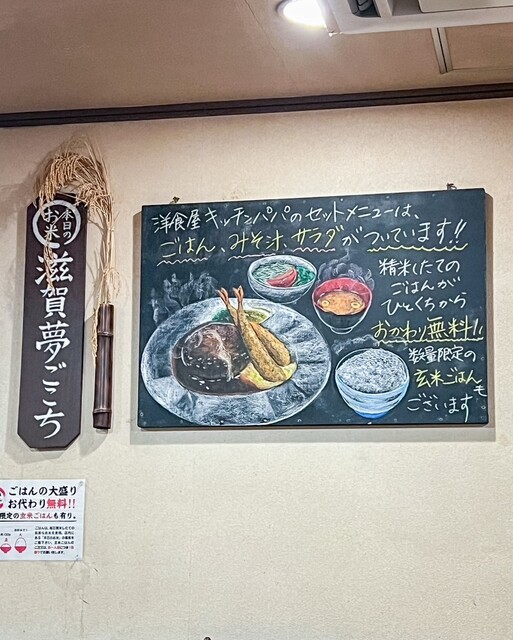 本日の
お米
滋賀夢ごこち
洋食屋キッチンパパのセットメニューは、
ごはん、みそ汁、サラダがついています!!
精米したての
ごはんが
ひとくちから
おかわり無料!!
数量限定の
玄米ごはんも
ございます
ごはんの大盛り
お代わり無料!!
限定の玄米ごはんも有り。